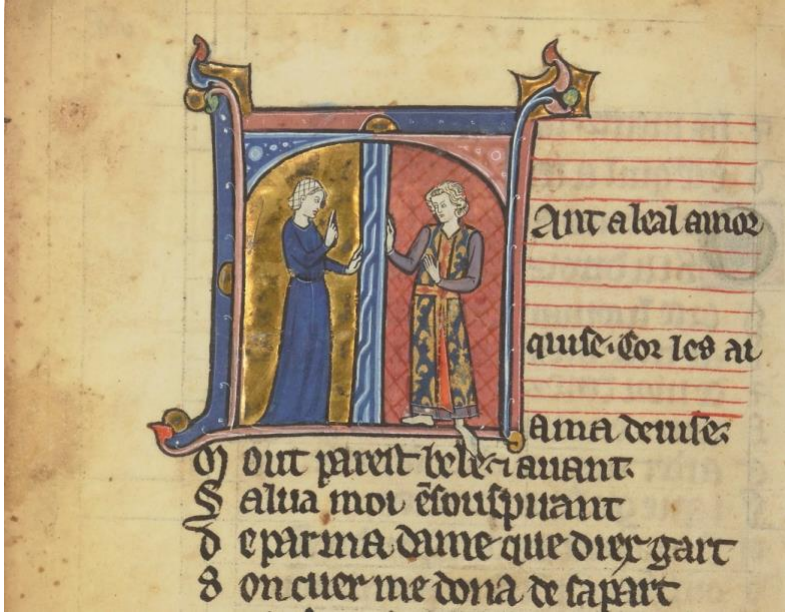 Tant a leal amor
quise. Cor les ai
a ma deuise.
M out pareit bele ⁊ auant.
S alua moi ē souspirant
D e par ma dame que diex gart
S on cuer me dona de sa part